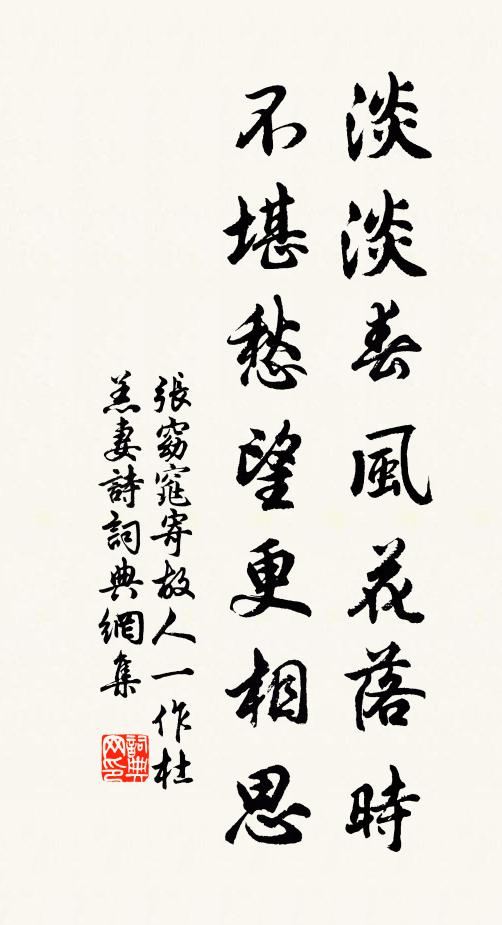 淡淡春風花落時
不堪愁望更相思
張窈窕寄故人一作杜
羔妻詩詞典網集
詞典
网印